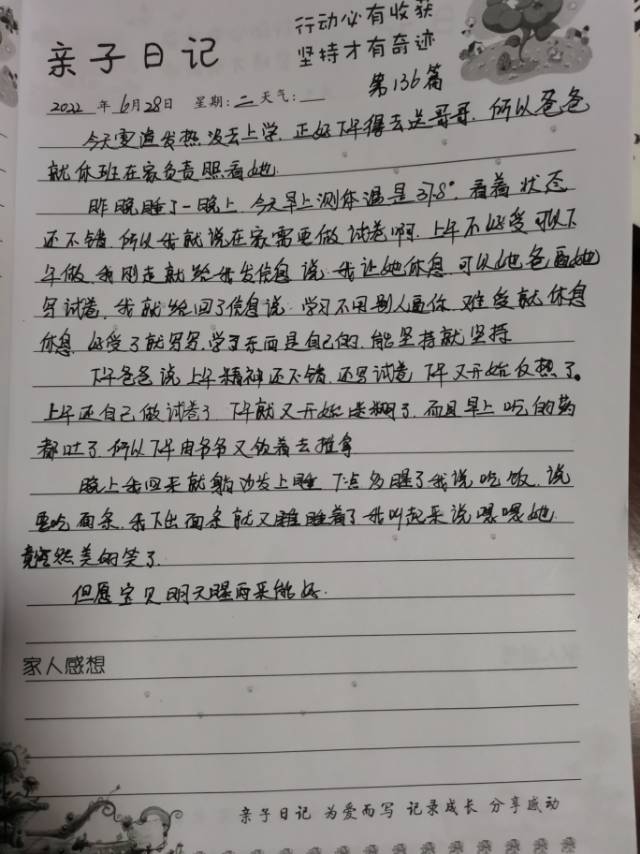 行动必有收获
坚持才有奇迹
亲子日记
第136篇
2022年6月28日 星期:二 天气:
今天雯 发热没去上学,正好下午得去送哥哥,所以爸爸
就休班在家负责照看她
昨晚睡了一晚上,今天早上测体温是37.8°,看着状态
还不错,所以我就说在家需要做试卷啊,上午不好受可以下
午做,我刚走就给我发信息说,我让她休息,可以她爸要她
写试卷,我就给回了信息说:学习不用别人逼你,难受就休息
休息,好受了就写写,学习东西是自己的,能坚持就坚持
下午爸爸说上午精神还不错,还写试卷,下午又开始反热了。
上午还自己做试卷了,下午就又开始迷糊了,而且早上吃的药
都吐了,所以下午由爷爷又 着去推拿
晚上我回来就躺沙发上睡,7点多醒了我说吃饭,说
要吃面条,我下出面条就又睡睡着了我叫起来说嗯嗯她
竟然美的笑了.
但愿宝贝明天醒雨采能好.
家人感想
亲子日记 为爱而写 记录成长 分享感动